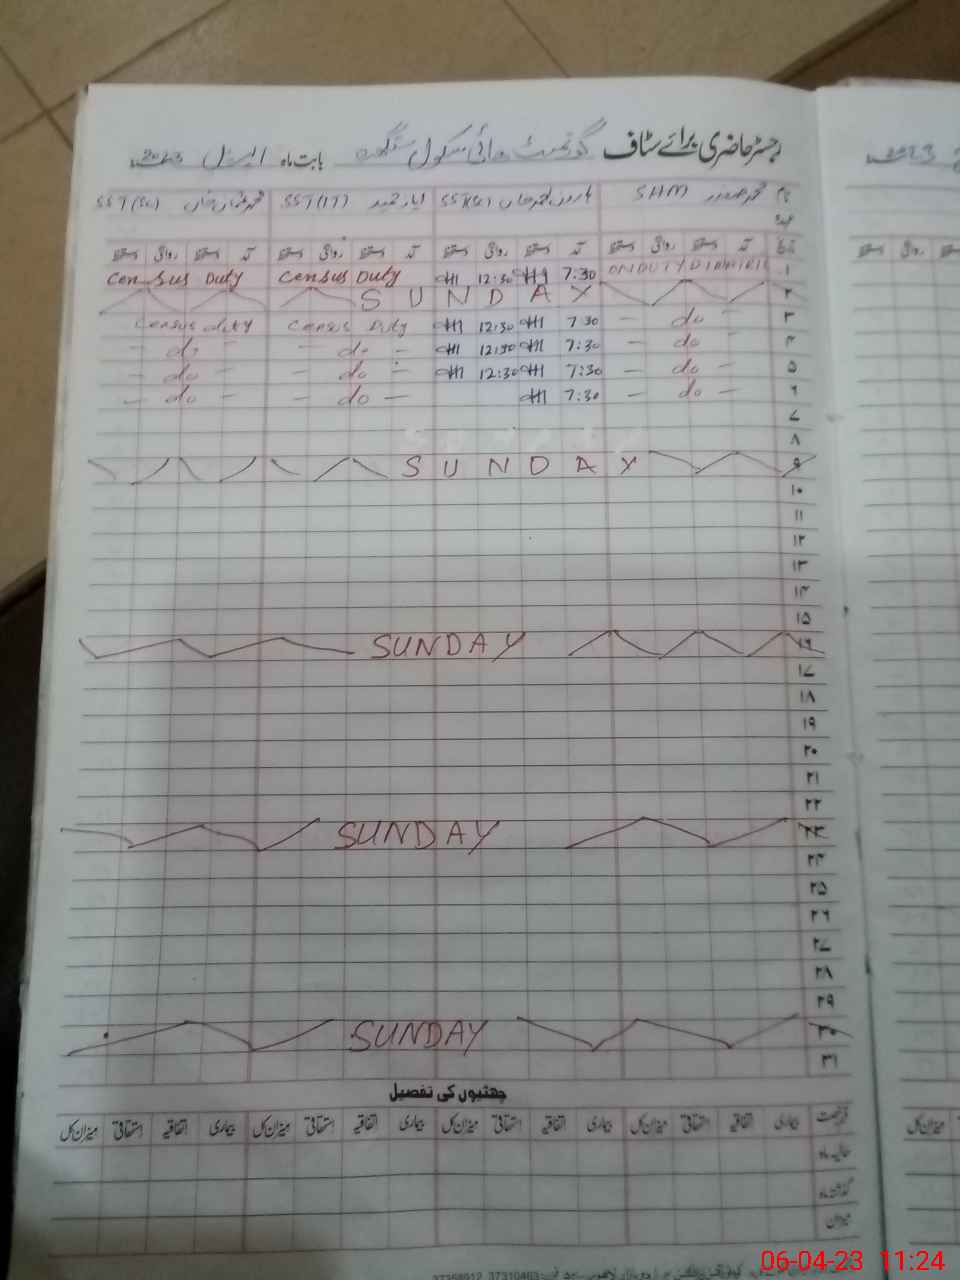 رجسٹر حاضری برائے سٹاف گورنمنٹ ہائی سکول بابت ماہ اپریل 2023
نام محمد صفدر SHM ہارون محمد خان SST(Sc) ایاز حمید SST(IT) محمد عثمان خان SST(Sc)
عہدہ
تاریخ آمد دستخط روانگی دستخط آمد دستخط روانگی دستخط آمد دستخط روانگی دستخط آمد دستخط روانگی دستخط
۱ ON DUTY 7:30 12:30 Census Duty Census Duty
۲ SUNDAY
۳ — do — 7:30 12:30 Census Duty Census duty
۴ — do — 7:30 12:30 — do — — do —
۵ — do — 7:30 12:30 — do — — do —
۶ — do — 7:30 — do — — do —
۷
۸
۹ SUNDAY
۱۰
۱۱
۱۲
۱۳
۱۴
۱۵
۱۶ SUNDAY
۱۷
۱۸
۱۹
۲۰
۲۱
۲۲
۲۳ SUNDAY
۲۴
۲۵
۲۶
۲۷
۲۸
۲۹
۳۰ SUNDAY
۳۱
چھٹیوں کی تفصیل
قسم رخصت بیماری اتفاقیہ استحقاقی میزان کل بیماری اتفاقیہ استحقاقی میزان کل بیماری اتفاقیہ استحقاقی میزان کل بیماری اتفاقیہ استحقاقی میزان کل
حالیہ ماہ
گذشتہ ماہ
میزان
37358912, 37310463
06-04-23 11:24